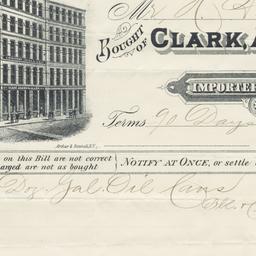 Mr
BOUGHT OF CLARK, A
IMPORTER
Terms 90 Days
Arthur & Bonnell, N.Y.
on this Bill are not correct
arged are not as bought
NOTIFY AT ONCE, or settle
Doz. Gal. Oil Cans